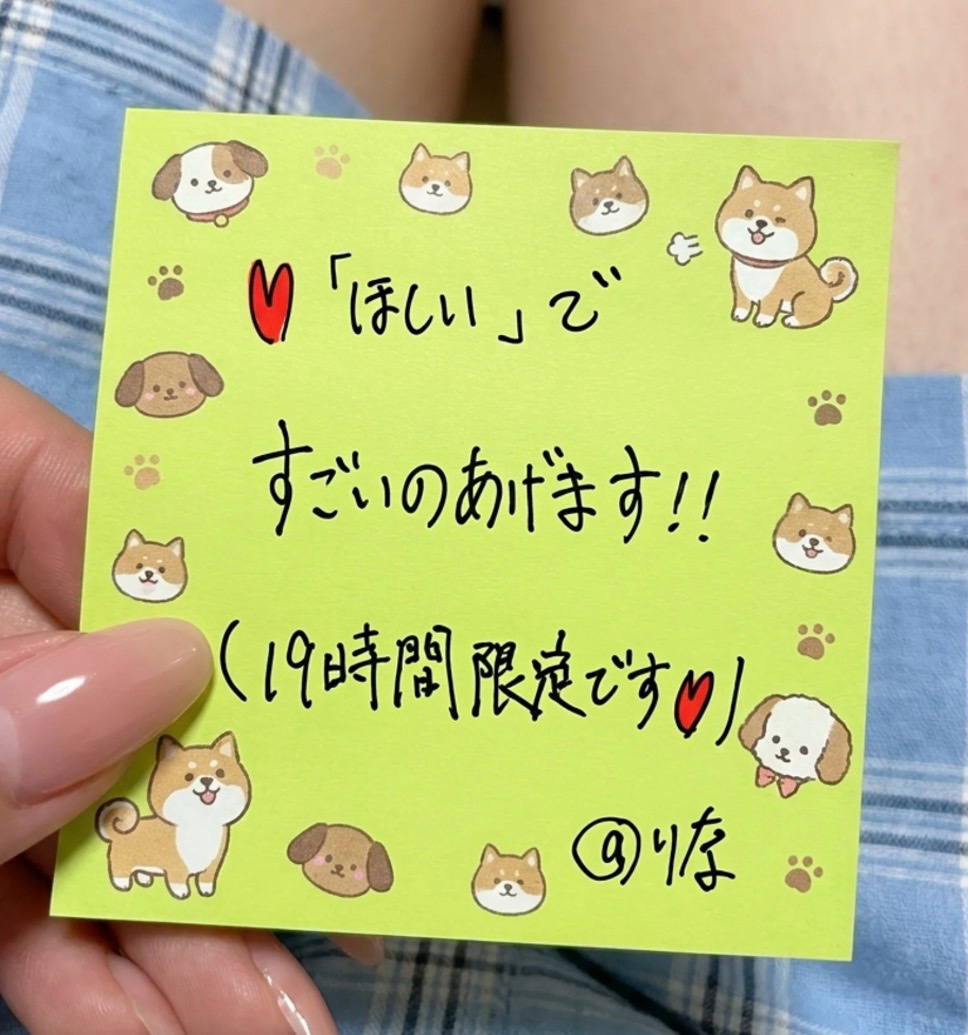 ♥「ほしい」で
すごいのあげます!!
(19時間限定です♥)
@りな